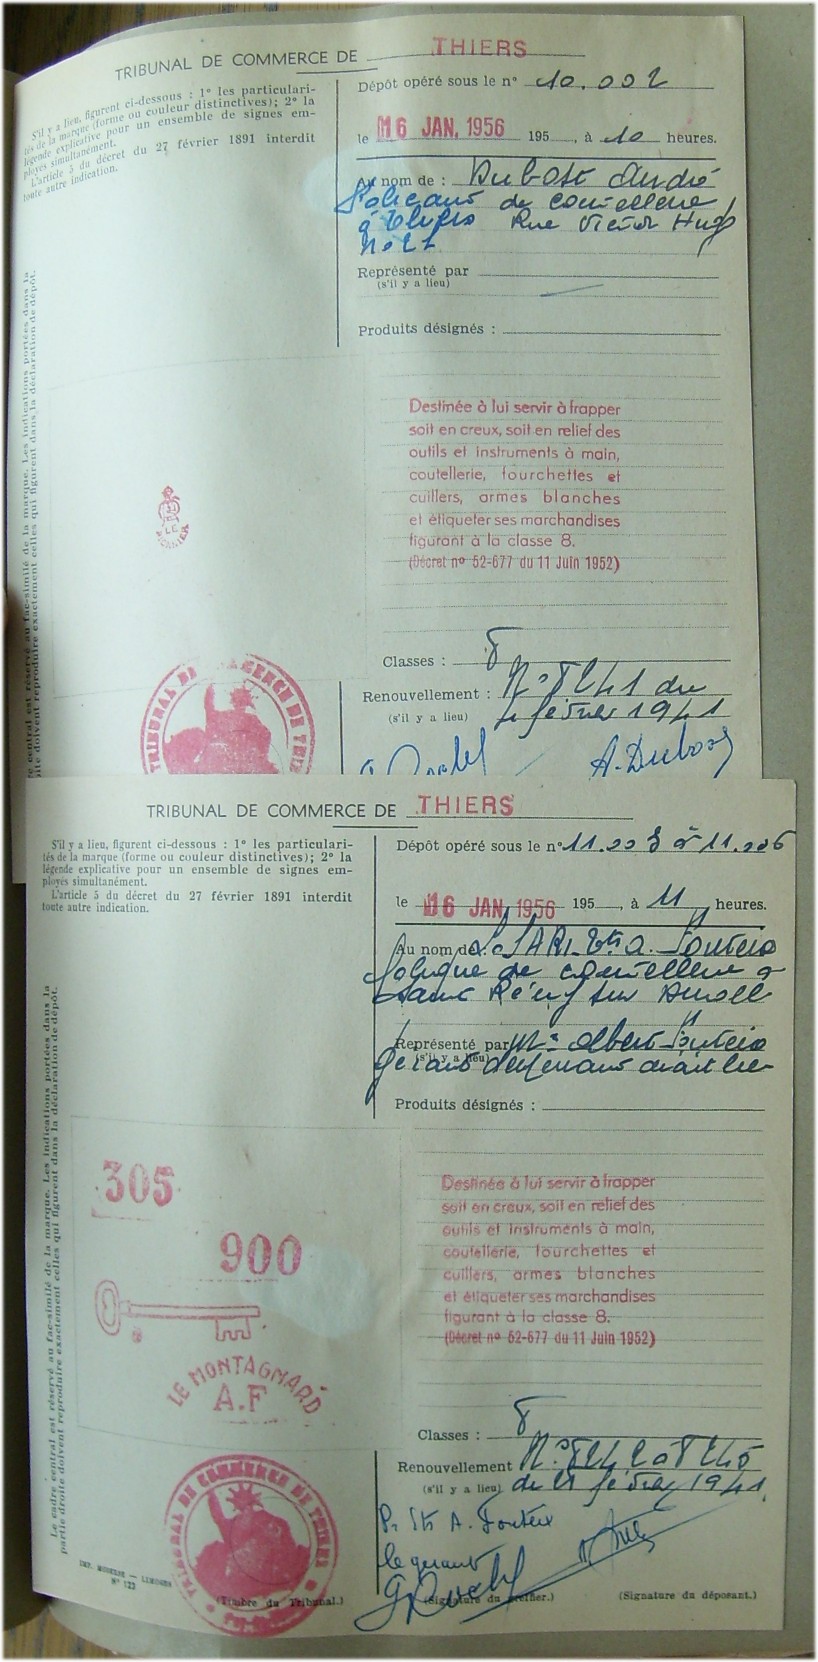 TRIBUNAL DE COMMERCE DE THIERS
S'il y a lieu, figurent ci-dessous : 1° les particulari-
tés de la marque (forme ou couleur distinctives); 2° la
légende explicative pour un ensemble de signes em-
ployés simultanément.
L'article 5 du décret du 27 février 1891 interdit
toute autre indication.
Dépôt opéré sous le n° 10.002
le 16 JAN. 1956 195 , à 10 heures.
Au nom de : Dubost André
de coutellerie
à Thiers Rue Victor Hugo
Représenté par
(s'il y a lieu)
Produits désignés :
Destinée à lui servir à frapper
soit en creux, soit en relief des
outils et instruments à main,
coutellerie, fourchettes et
cuillers, armes blanches
et étiqueter ses marchandises
figurant à la classe 8.
(Décret nº 52-677 du 11 Juin 1952)
LE
Classes : 8
Renouvellement : N° 8241 du
(s'il y a lieu) 4 février 1941
A. Dubost
TRIBUNAL DE COMMERCE DE
cadre central est réservé au fac-similé de la marque. Les indications portées dans la
droite doivent reproduire exactement celles qui figurent dans la déclaration de dépôt.
TRIBUNAL DE COMMERCE DE THIERS
S'il y a lieu, figurent ci-dessous : 1° les particulari-
tés de la marque (forme ou couleur distinctives); 2° la
légende explicative pour un ensemble de signes em-
ployés simultanément.
L'article 5 du décret du 27 février 1891 interdit
toute autre indication.
Dépôt opéré sous le n°
le 16 JAN 1956 195 , à 11 heures.
Au nom de :
de coutellerie à
Saint Rémy sur Durolle
Représenté par Mr Albert
(s'il y a lieu)
Produits désignés :
305
900
LE MONTAGNARD
A.F
Destinée à lui servir à frapper
soit en creux, soit en relief des
outils et instruments à main,
coutellerie, fourchettes et
cuillers, armes blanches
et étiqueter ses marchandises
figurant à la classe 8.
(Décret nº 52-677 du 11 Juin 1952)
Classes : 8
Renouvellement
(s'il y a lieu) février 1941
le gérant
TRIBUNAL DE COMMERCE DE THIERS
Le cadre central est réservé au fac-similé de la marque. Les indications portées dans la
partie droite doivent reproduire exactement celles qui figurent dans la déclaration de dépôt.
LIMOGES
N° 122
(Timbre du Tribunal.)
(Signature du greffier.)
(Signature du déposant.)